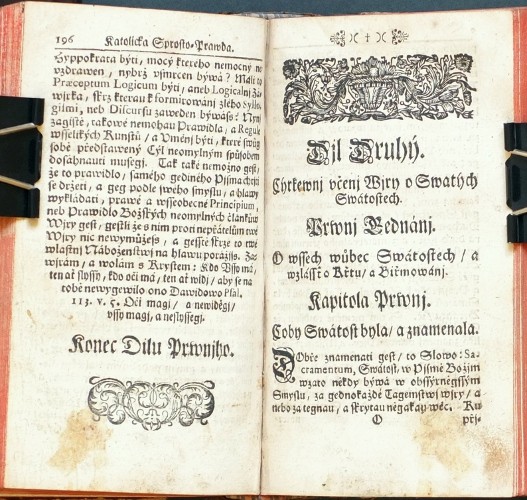 196 Katolická Sprosto-Prawda.
Hyppokrata býti, mocý kterého nemocný ne
vzdrawen, nybrž vsmrcen býwá? Máli to
Præceptum Logicum býti, aneb Logicalnj Zá-
wjrka, skrz kterau k formirowánj zlého Syllo-
gismi, neb Discursu zaweden býwáss? Nynj
zagisté, takowé nemohau Prawidla, a Regule
wsselikých Kunsstů, a Vměnj býti, které swůg
sobě předstawený Cýl neomylným způsobem
dosáhnauti musegj. Tak také nemožno gest,
že to prawidlo, samého gediného Pjsma chtjti
se držeti, a geg podle swého smyslu, a hlawy
wykládati, prawé a wsseobecné Principium,
neb Prawidlo Božských neomylných článků w
Wjry gest, gestli že s njm proti nepřátelům twé
Wjry nic newymůžess, a gesstě skrze to twé
wlastnj Náboženstwj na hlawu porážjss. Za-
wjrám, a wolám s Krystem: Kdo Vssi má,
ten ať slyssý, kdo oči má, ten ať widj, aby se na
tobě newygewilo ono Dawidowo Psal.
113. v. 5. Oči magj, a newiděgj,
vssy magj, a neslyssegj.
Konec Dilu Prwnjho.
Djl Druhý.
Cýrkewnj včenj Wjry o Swatých
Swátostech.
Prwnj Gednánj.
O wssech wůbec Swátostech, a
wzlásstě o Křtu, a Biřmowánj.
Kapitola Prwnj.
Coby Swátost byla, a znamenala.
Dobře znamenati gest, to Slowo: Sa-
cramentum, Swátost, w Pjsmě Božjm
wzato někdy býwá w obssýrněgssým
Smyslu, za gednokaždé Tagemstwj wjry, a
nebo za tegnau, a skrytau něgakau wěc. Ku
O přj-